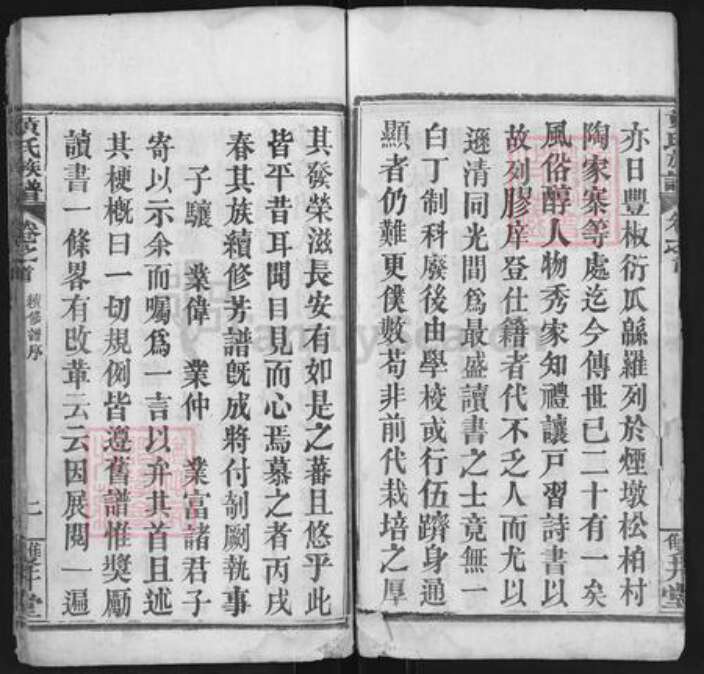 亦日豐椒衍瓜緜羅列於煙墩松柏村
陶家寨等處迄今傳世已二十有一矣
風俗醇人物秀家知禮讓戸習詩書以
故列膠庠登仕籍者代不乏人而尤以
遜清同光間爲最盛讀書之士竟無一
白丁制科廢後由學校或行伍躋身通
顯者仍難更僕數苟非前代栽培之厚
雙井堂
其發榮滋長安有如是之蕃且悠乎此
皆平昔耳聞目見而心焉慕之者丙戌
春其族續修芳譜旣成將付剞劂執事
子驤 業偉 業仲 業富諸君子
寄以示余而囑爲一言以弁其首且述
其梗槪曰一切規例皆遵舊譜惟獎勵
讀書一條畧有改革云云因展閱一遍
黃氏族譜
卷之首
續修譜序
雙井堂
FamilySearch